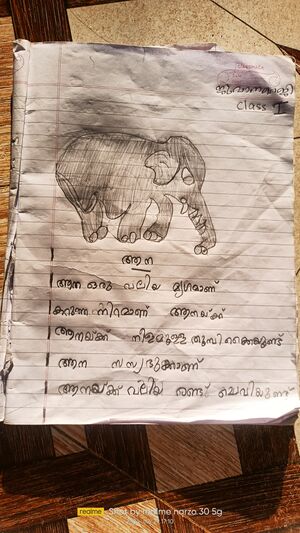 Class I
ആന
ആന ഒരു വലിയ മൃഗമാണ്
കറുത്ത നിറമാണ് ആനയ്ക്ക്
ആനയ്ക്ക് നീളമുള്ള തുമ്പിക്കൈയുണ്ട്
ആന സസ്യഭുക്കാണ്
ആനയ്ക്ക് വലിയ രണ്ട് ചെവിയുണ്ട്
realme Shot by realme narzo 30 5g